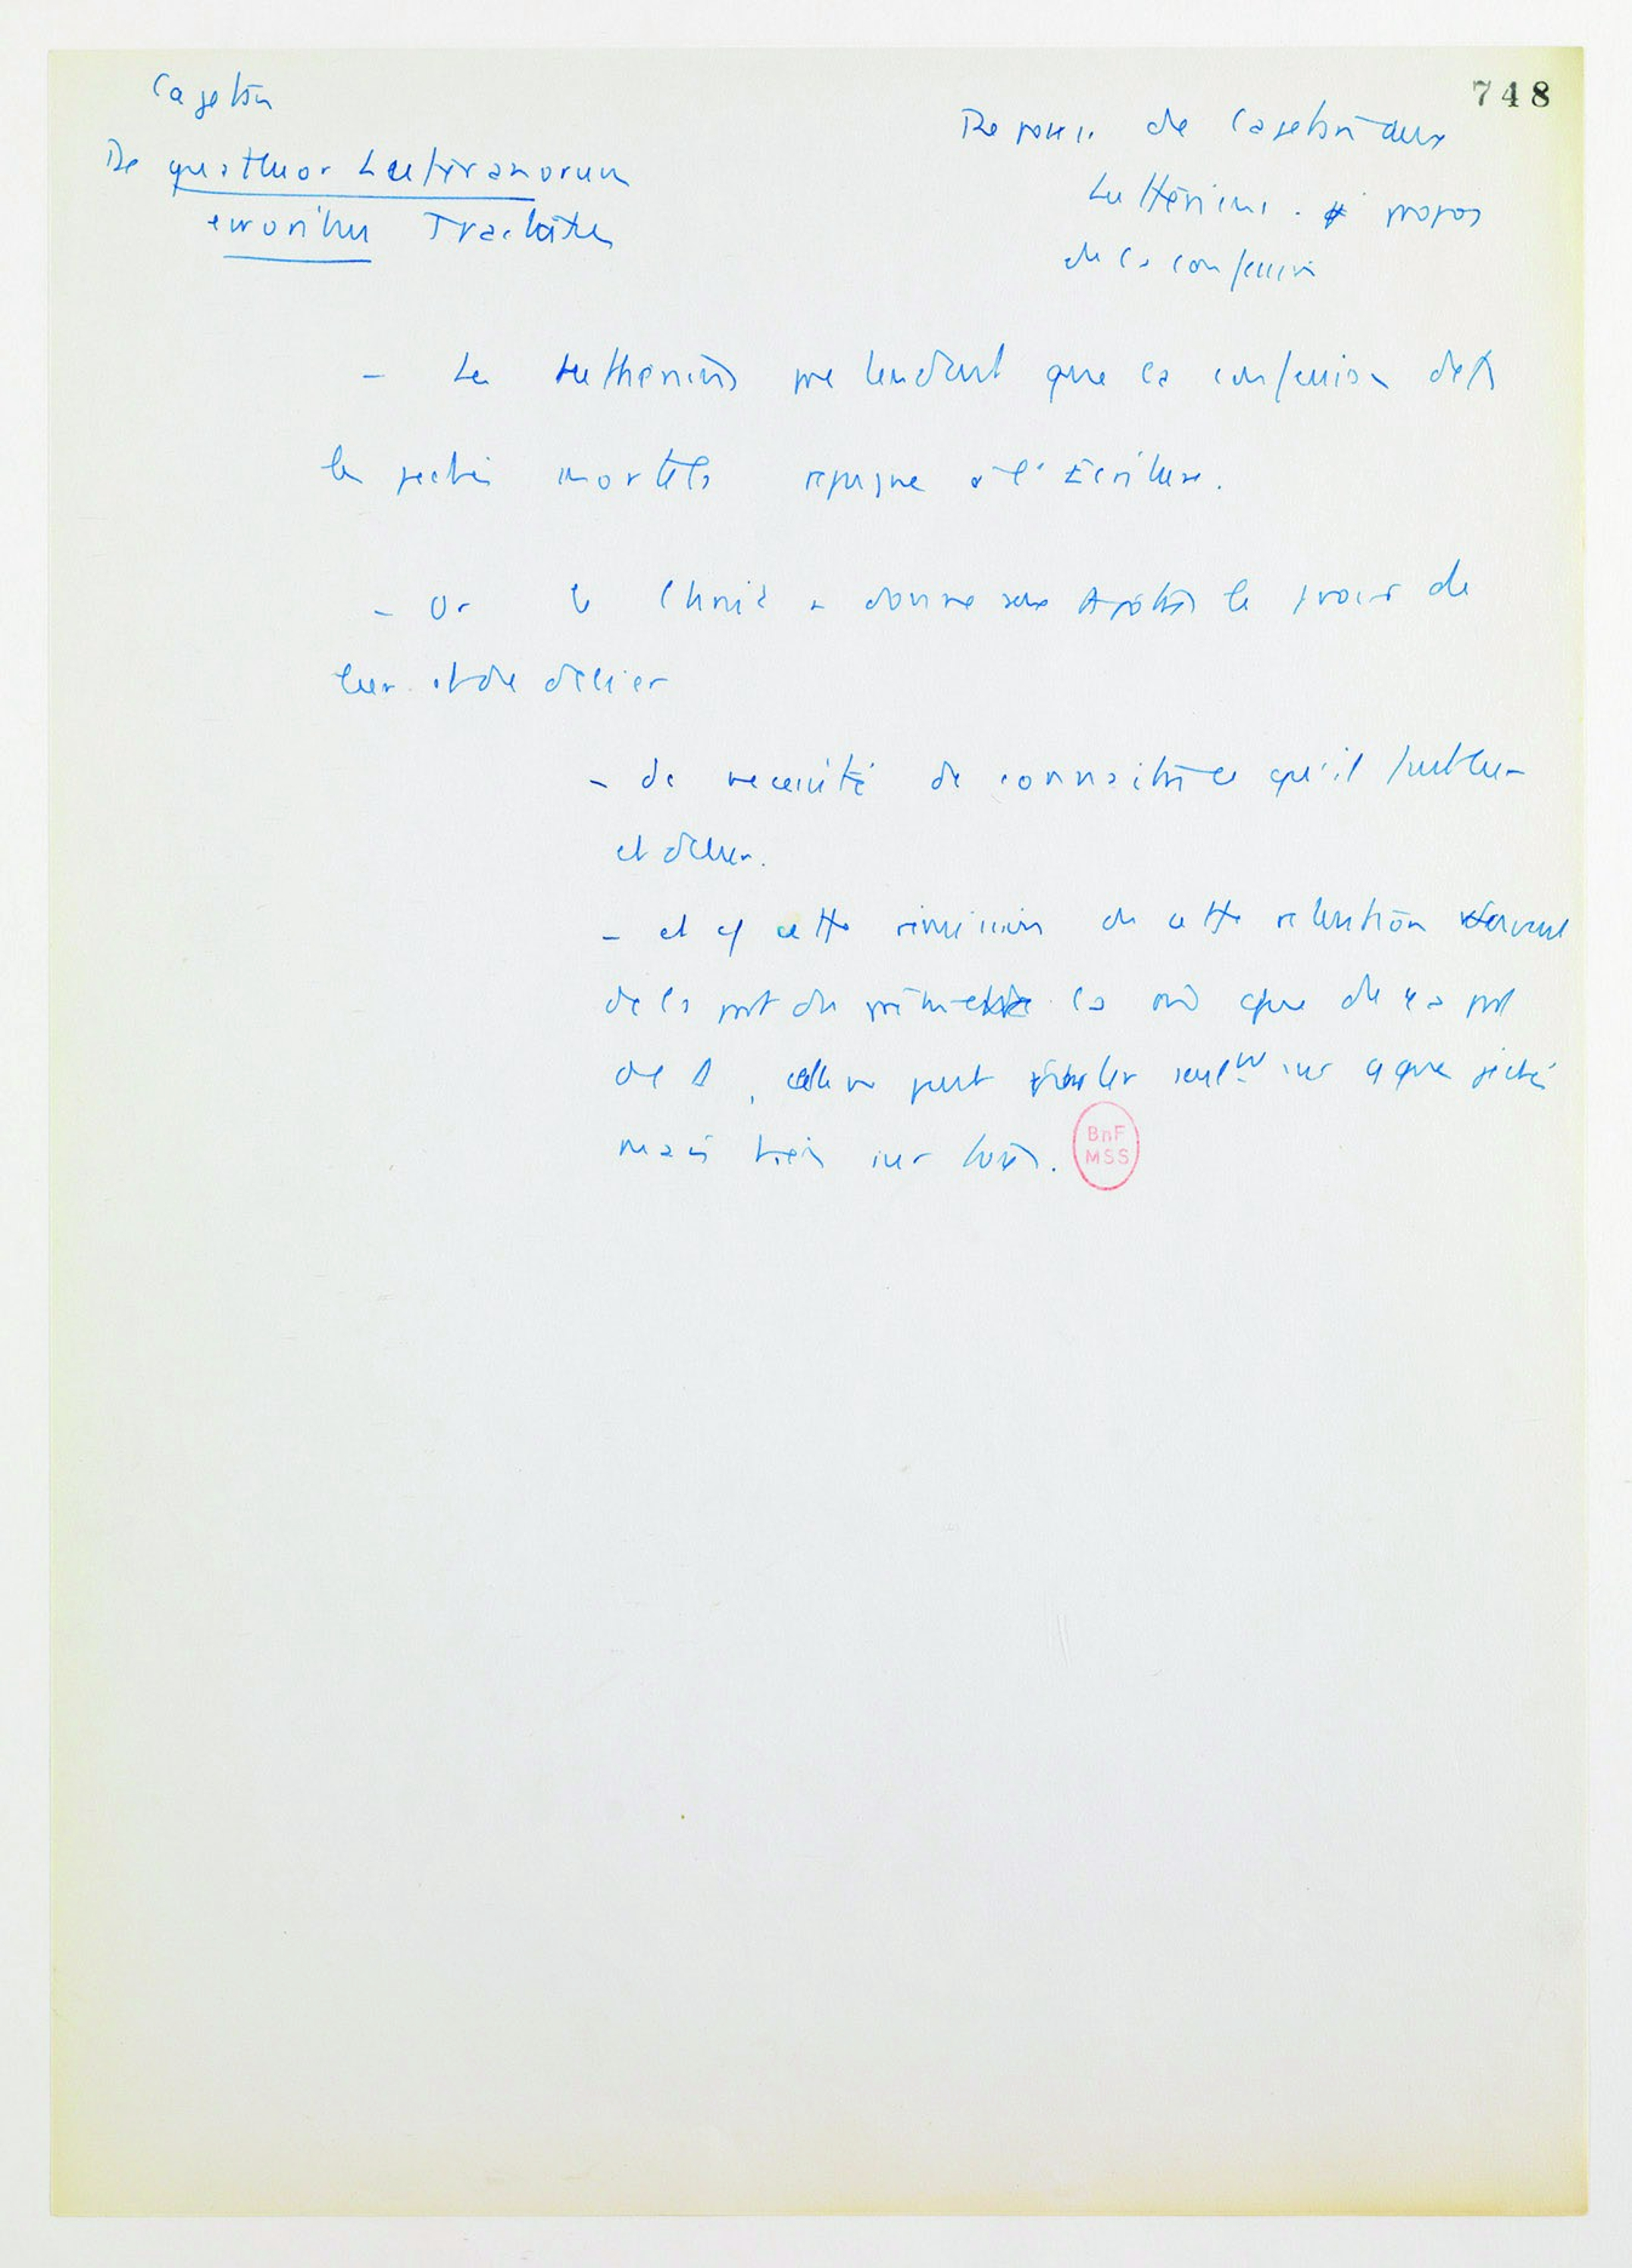 748
Cajetan
De quattuor Lutheranorum
erroribus Tractatus
Réponse de Cajetan aux
Luthériens à propos
de la confession
- Les Luthériens prétendent que la confession de ts
les péchés mortels répugne à l'Écriture.
- Or le Christ a donné aux Apôtres le pvoir de
lier et de délier
- de nécessité de connaître ce qu'il faut lier
et délier.
- et cette rémission ou cette rétention devant
de la part du prêtre la que de la part
de , elle ne peut porter seulmt sur qque péchés
mais bien sur tous.
BnF
MSS